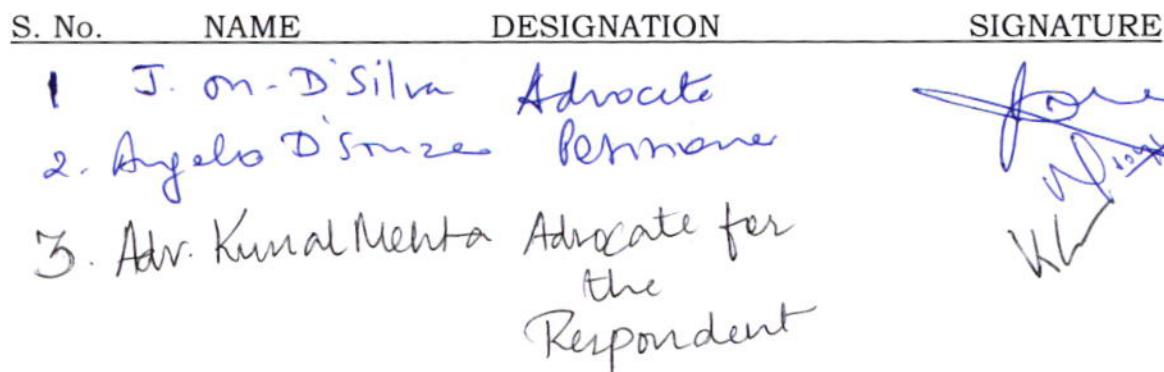 S. No. NAME DESIGNATION SIGNATURE
1 J. M. D'Silva Advocate
2. Angelo D'Souza Petitioner
3. Adv. Kunal Mehta Advocate for
the
Respondent